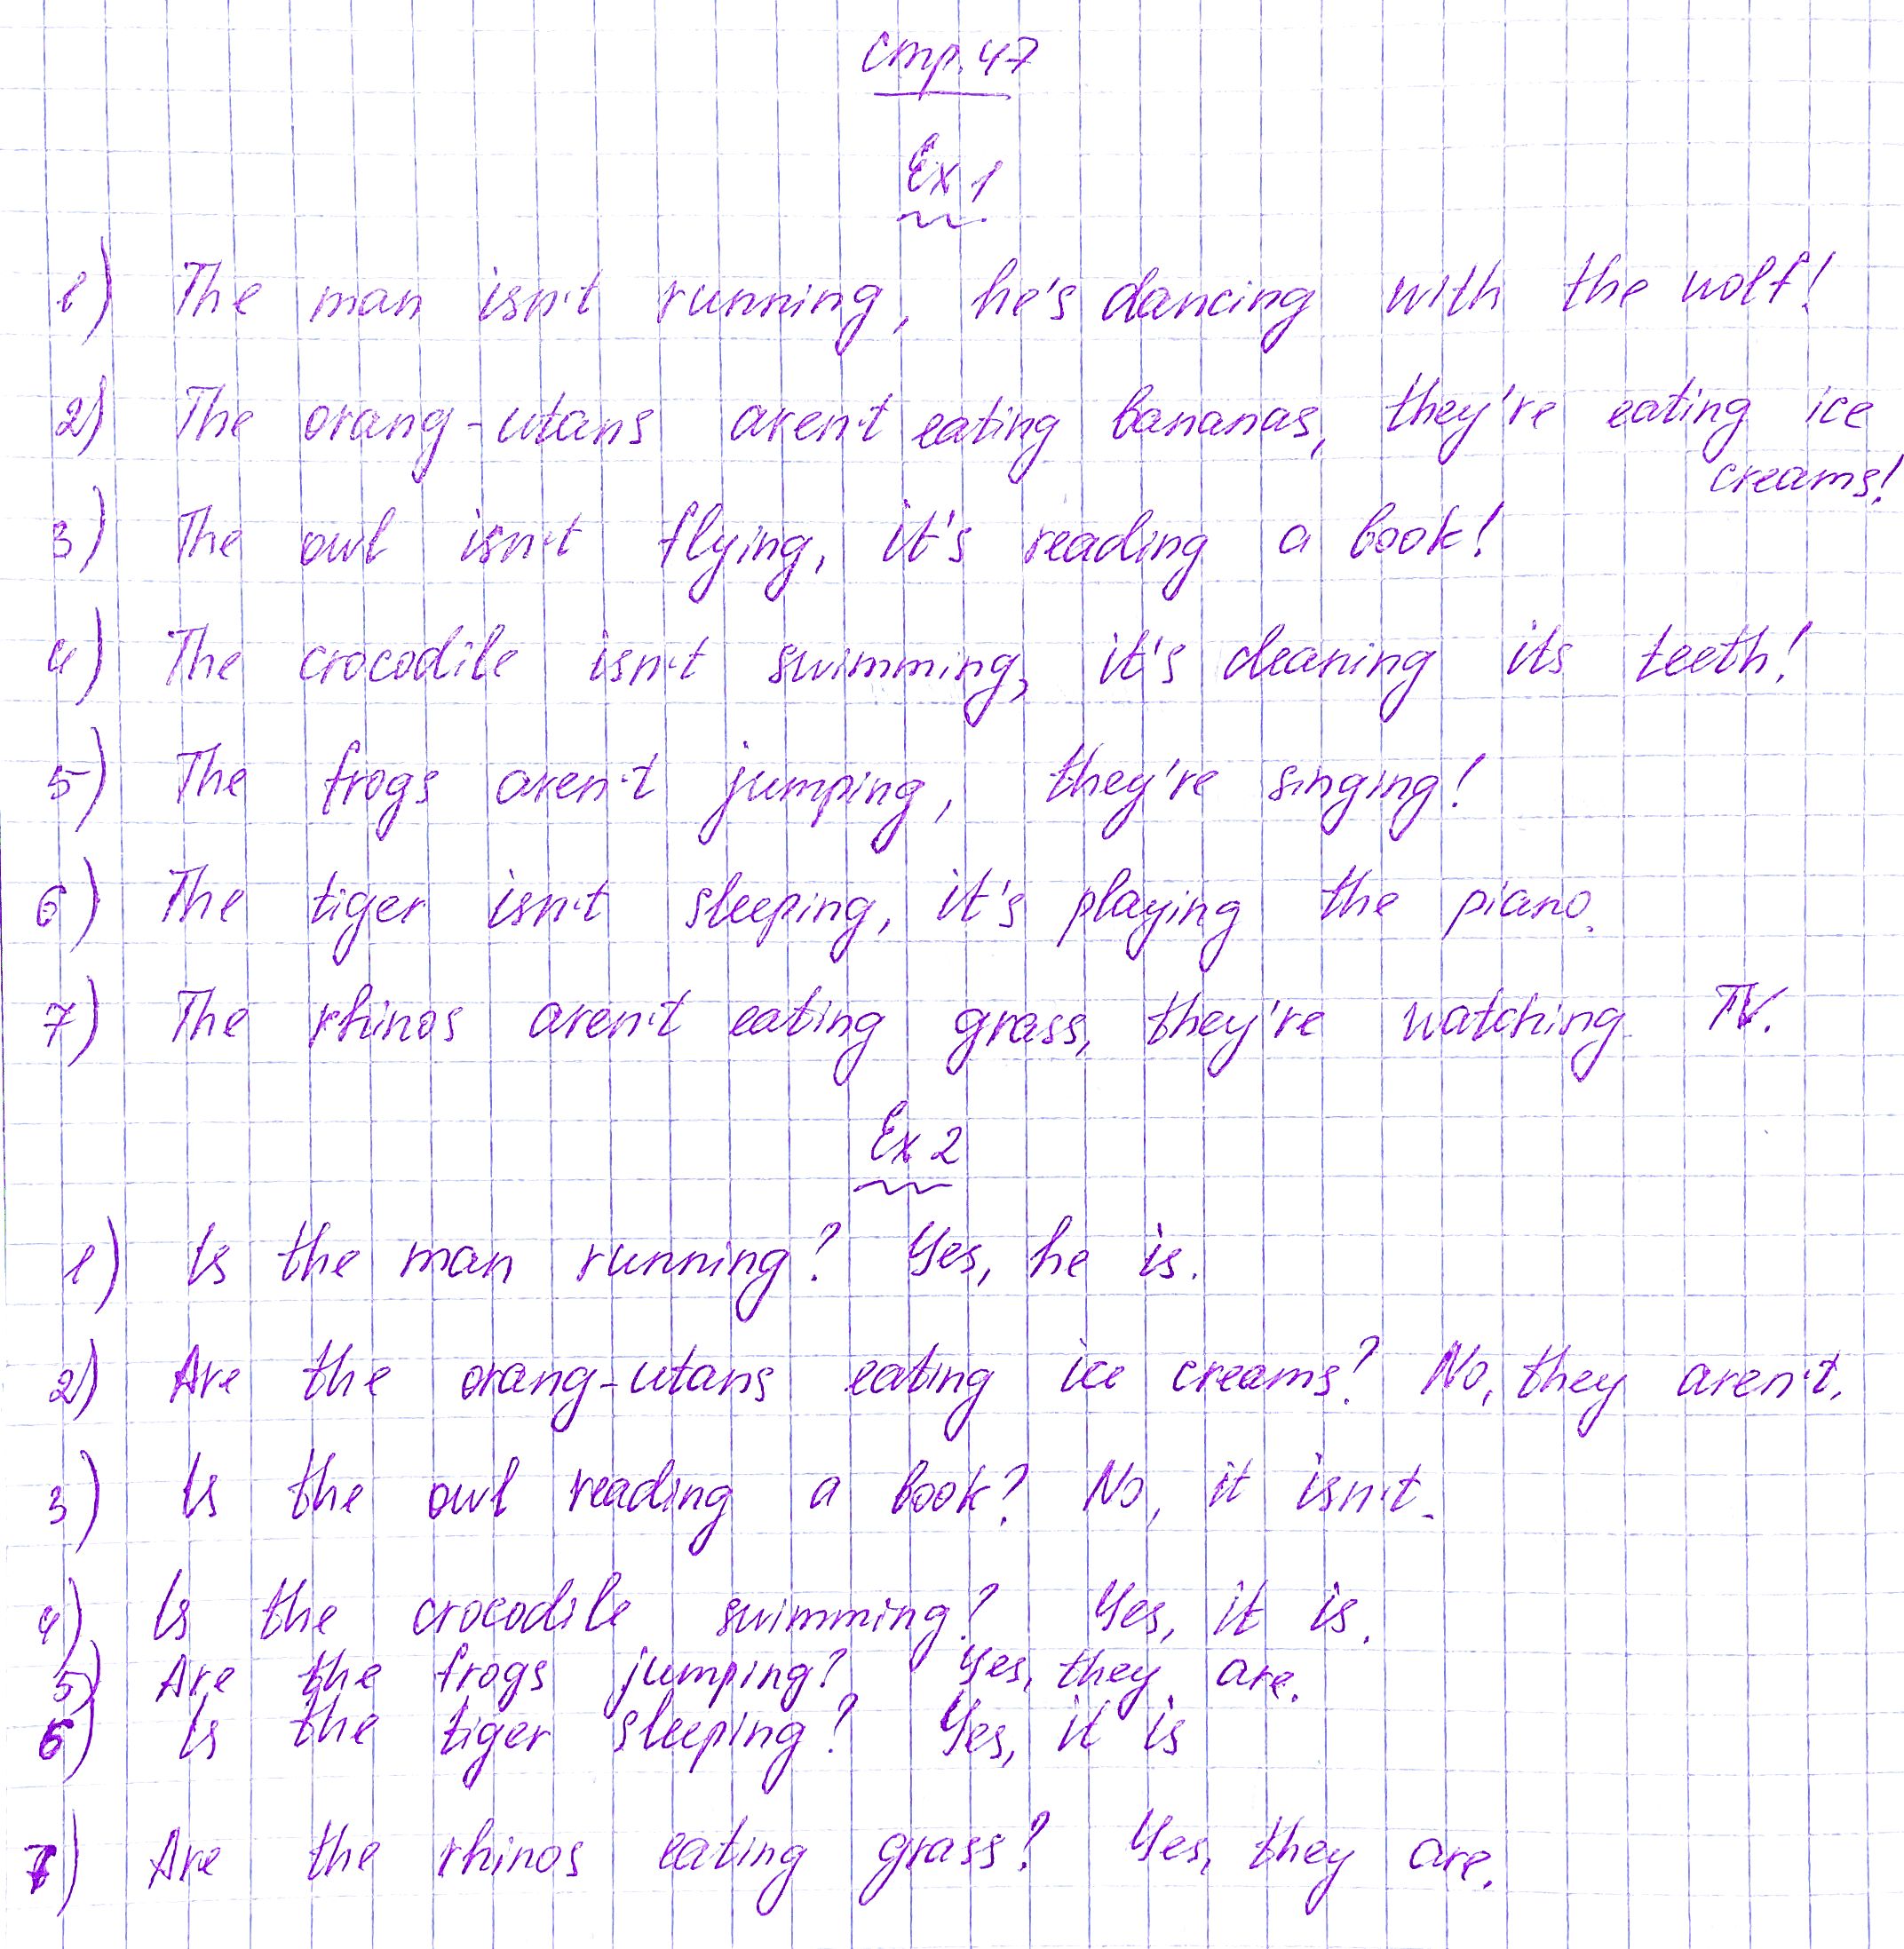 стр. 47
Ex 1
1) The man isn't running, he's dancing with the wolf!
2) The orang-utans aren't eating bananas, they're eating ice
creams!
3) The owl isn't flying, it's reading a book!
4) The crocodile isn't swimming, it's cleaning its teeth!
5) The frogs aren't jumping, they're singing!
6) The tiger isn't sleeping, it's playing the piano.
7) The rhinos aren't eating grass, they're watching TV.
Ex 2
1) Is the man running? Yes, he is.
2) Are the orang-utans eating ice creams? No, they aren't.
3) Is the owl reading a book? No, it isn't.
4) Is the crocodile swimming? Yes, it is.
5) Are the frogs jumping? Yes, they are.
6) Is the tiger sleeping? Yes, it is
7) Are the rhinos eating grass? Yes, they are.